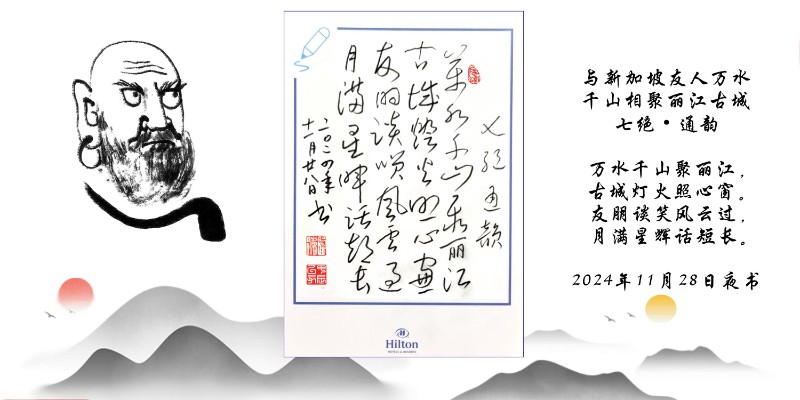 七绝通韵
萬水千山聚丽江
古城燈火照心窗
友朋谈笑风云过
月满星晖话短长
二〇二四年
十一月廿八日 书
Hilton
HOTELS & RESORTS
与新加坡友人万水
千山相聚丽江古城
七绝•通韵
万水千山聚丽江，
古城灯火照心窗。
友朋谈笑风云过，
月满星辉话短长。
2024年11月28日夜书